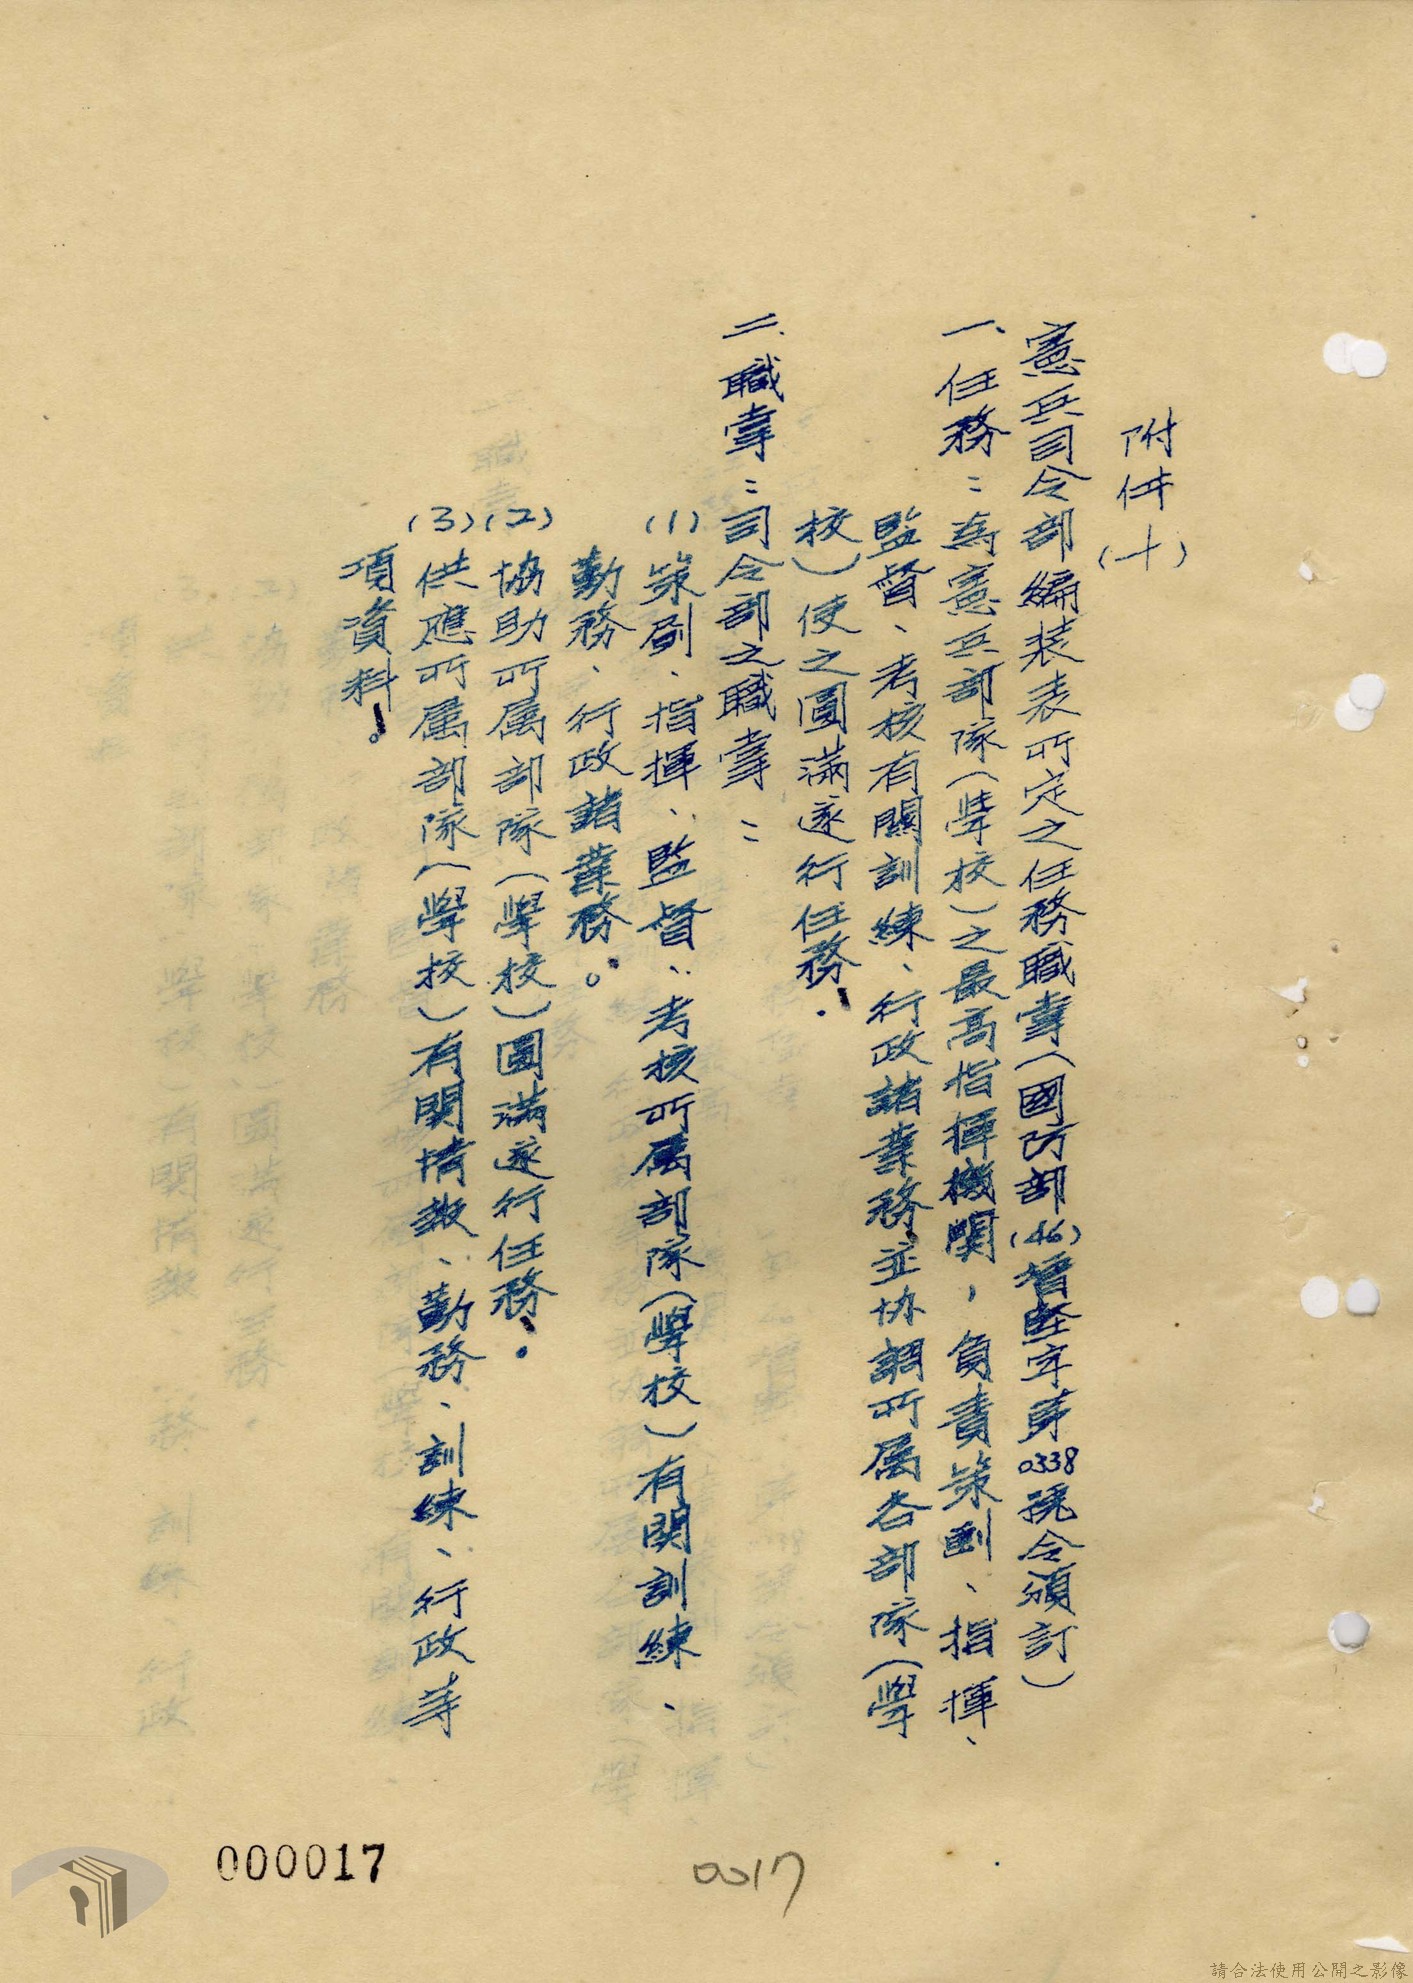 附件(十)
憲兵司令部編裝表所定之任務職掌(國防部(46)字第0338號令頒訂)
一、任務：為憲兵部隊(學校)之最高指揮機関，負責策劃、指揮、
監督、考核有關訓練、行政諸業務並协調所属各部隊(學
校)使之圓滿遂行任務.
二、職掌：司令部之職掌：
(1)策劃、指揮、監督、考核所属部隊(學校)有関訓練、
勤務、行政諸業務。
(2)協助所属部隊(學校)圓滿遂行任務.
(3)供應所属部隊(學校)有関情報、勤務、訓練、行政等
項資料。
000017
0017
請合法使用公開之影像